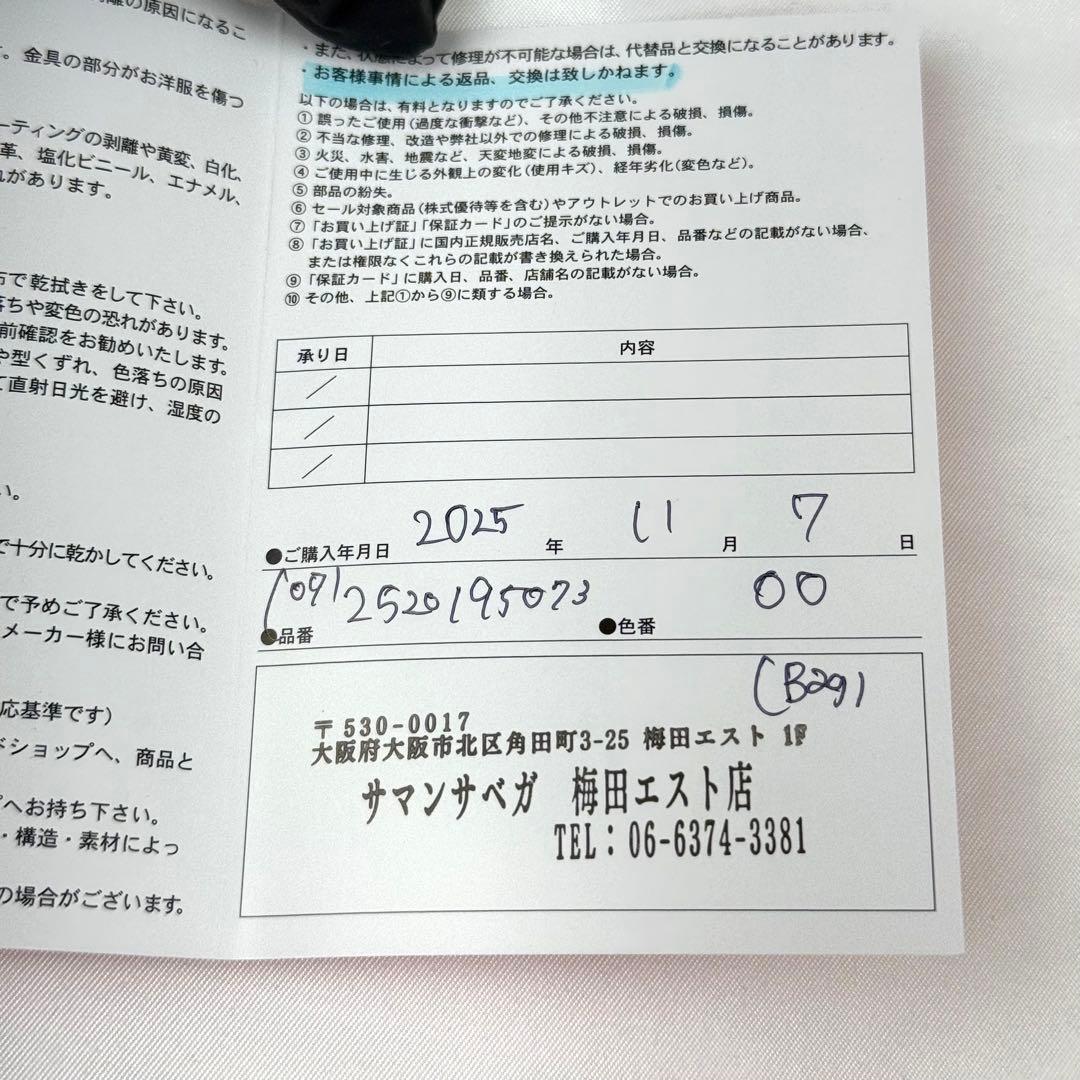 離の原因になるこ
す。金具の部分がお洋服を傷つ
ーティングの剥離や黄変、白化、
革、塩化ビニール、エナメル、
れがあります。
布で乾拭きをして下さい。
落ちや変色の恐れがあります。
前確認をお勧めいたします。
や型くずれ、色落ちの原因
て直射日光を避け、湿度の
い。
で十分に乾かしてください。
で予めご了承ください。
メーカー様にお問い合
応基準です）
ドショップへ、商品と
プへお持ち下さい。
・構造・素材によっ
の場合がございます。
・また、状態によって修理が不可能な場合は、代替品と交換になることがあります。
・お客様事情による返品、交換は致しかねます。
以下の場合は、有料となりますのでご了承ください。
①誤ったご使用（過度な衝撃など）、その他不注意による破損、損傷。
②不当な修理、改造や弊社以外での修理による破損、損傷。
③火災、水害、地震など、天変地変による破損、損傷。
④ご使用中に生じる外観上の変化（使用キズ）、経年劣化（変色など）。
⑤部品の紛失。
⑥セール対象商品（株式優待等を含む）やアウトレットでのお買い上げ商品。
⑦「お買い上げ証」「保証カード」のご提示がない場合。
⑧「お買い上げ証」に国内正規販売店名、ご購入年月日、品番などの記載がない場合、
または権限なくこれらの記載が書き換えられた場合。
⑨「保証カード」に購入日、品番、店舗名の記載がない場合。
⑩その他、上記①から⑨に類する場合。
承り日 内容
／
／
／
●ご購入年月日 2025 年 11 月 7 日
●品番 (09) 2520195073 ●色番 00
(B29)
〒530-0017
大阪府大阪市北区角田町3-25 梅田エスト 1F
サマンサベガ 梅田エスト店
TEL：06-6374-3381